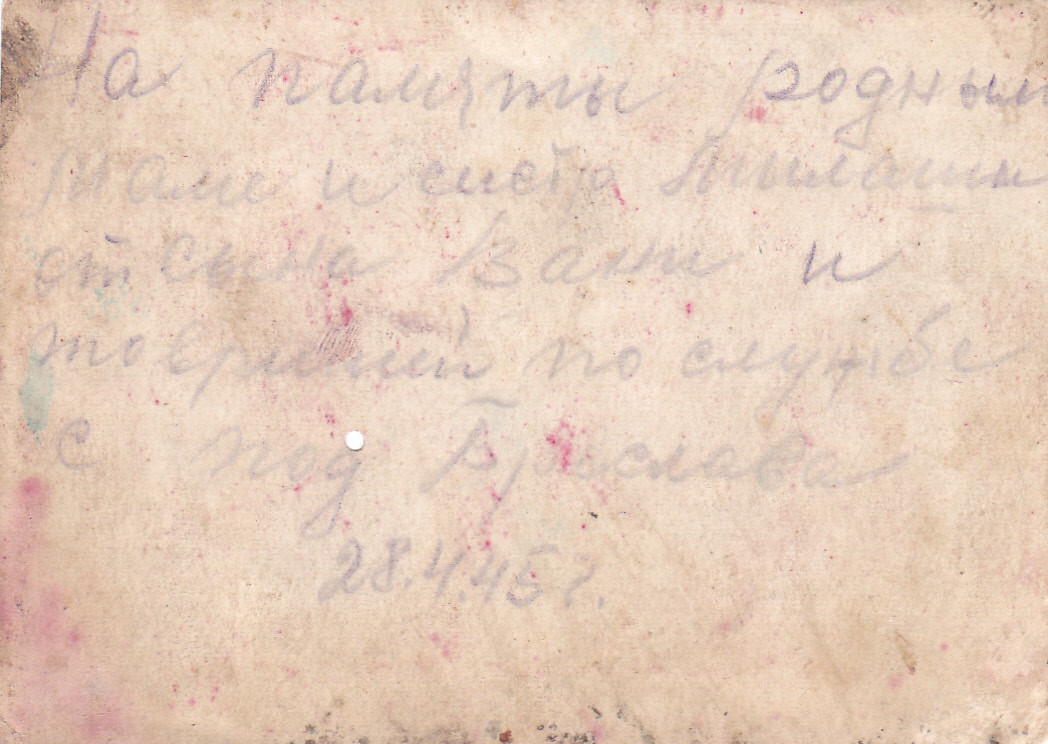 На памяты родным
маме и систе
от сына Вани и
товрищей по службе
с под Бреслава
28.4.45 г.